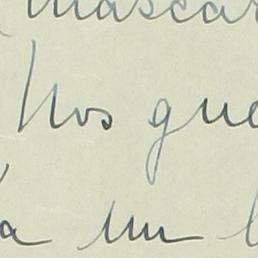 mascar
Nos que
a un l